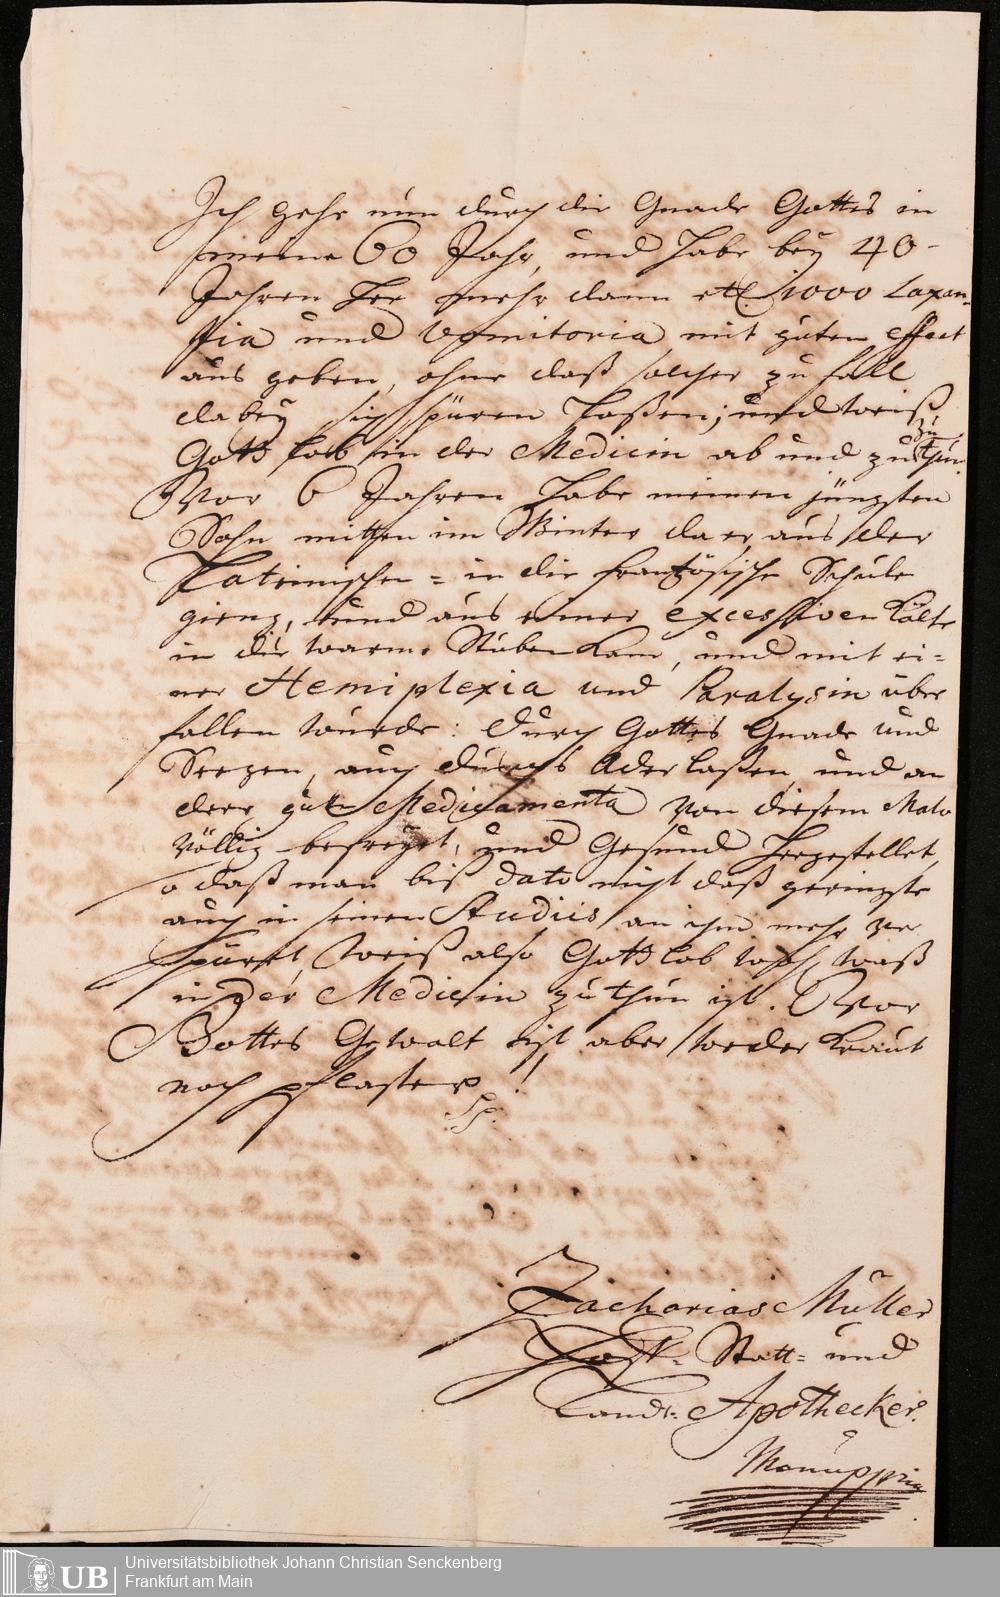 Ich gehe nun durch die Gnade Gottes in
meine 60 Jahr, und habe bey 40-
Jahren her mehr dann etl. 1000 Laxan-
tia und Vomitoria mit guten effect
aus geben, ohne daß solcher zufall
dabey sich spüren laßen; und weiß
Gott lob in der Medicin ab und zu zu thun.
Vor 6 Jahren habe meinen jüngsten
Sohn mitten im Winter da er aus der
Lateinischen = in die französische Schule
gieng, und aus einer excessiven Kälte
in die warme Stuben kam, und mit ei=
ner Hemiplexia und Paralysin über
fallen wurde: durch Gottes Gnade und
Seegen, auch durchs Aderlaßen und an
dere gute Medicamenta von diesem Malo
völlig befreyet, und Gesund hergestellet,
so daß man biß dato nicht daß geringste
auch in seinen Studiis an ihm mehr ver
spüret, weiß also Gott lob noch, waß
in der Medicin zu thun ist. Vor
Gottes Gewalt ist aber weder Kraut
noch pflaster!
Zacharias Müller
Hoff- Statt= und
Land= Apothecker.
Manuppria
Universitätsbibliothek Johann Christian Senckenberg
Frankfurt am Main
UB